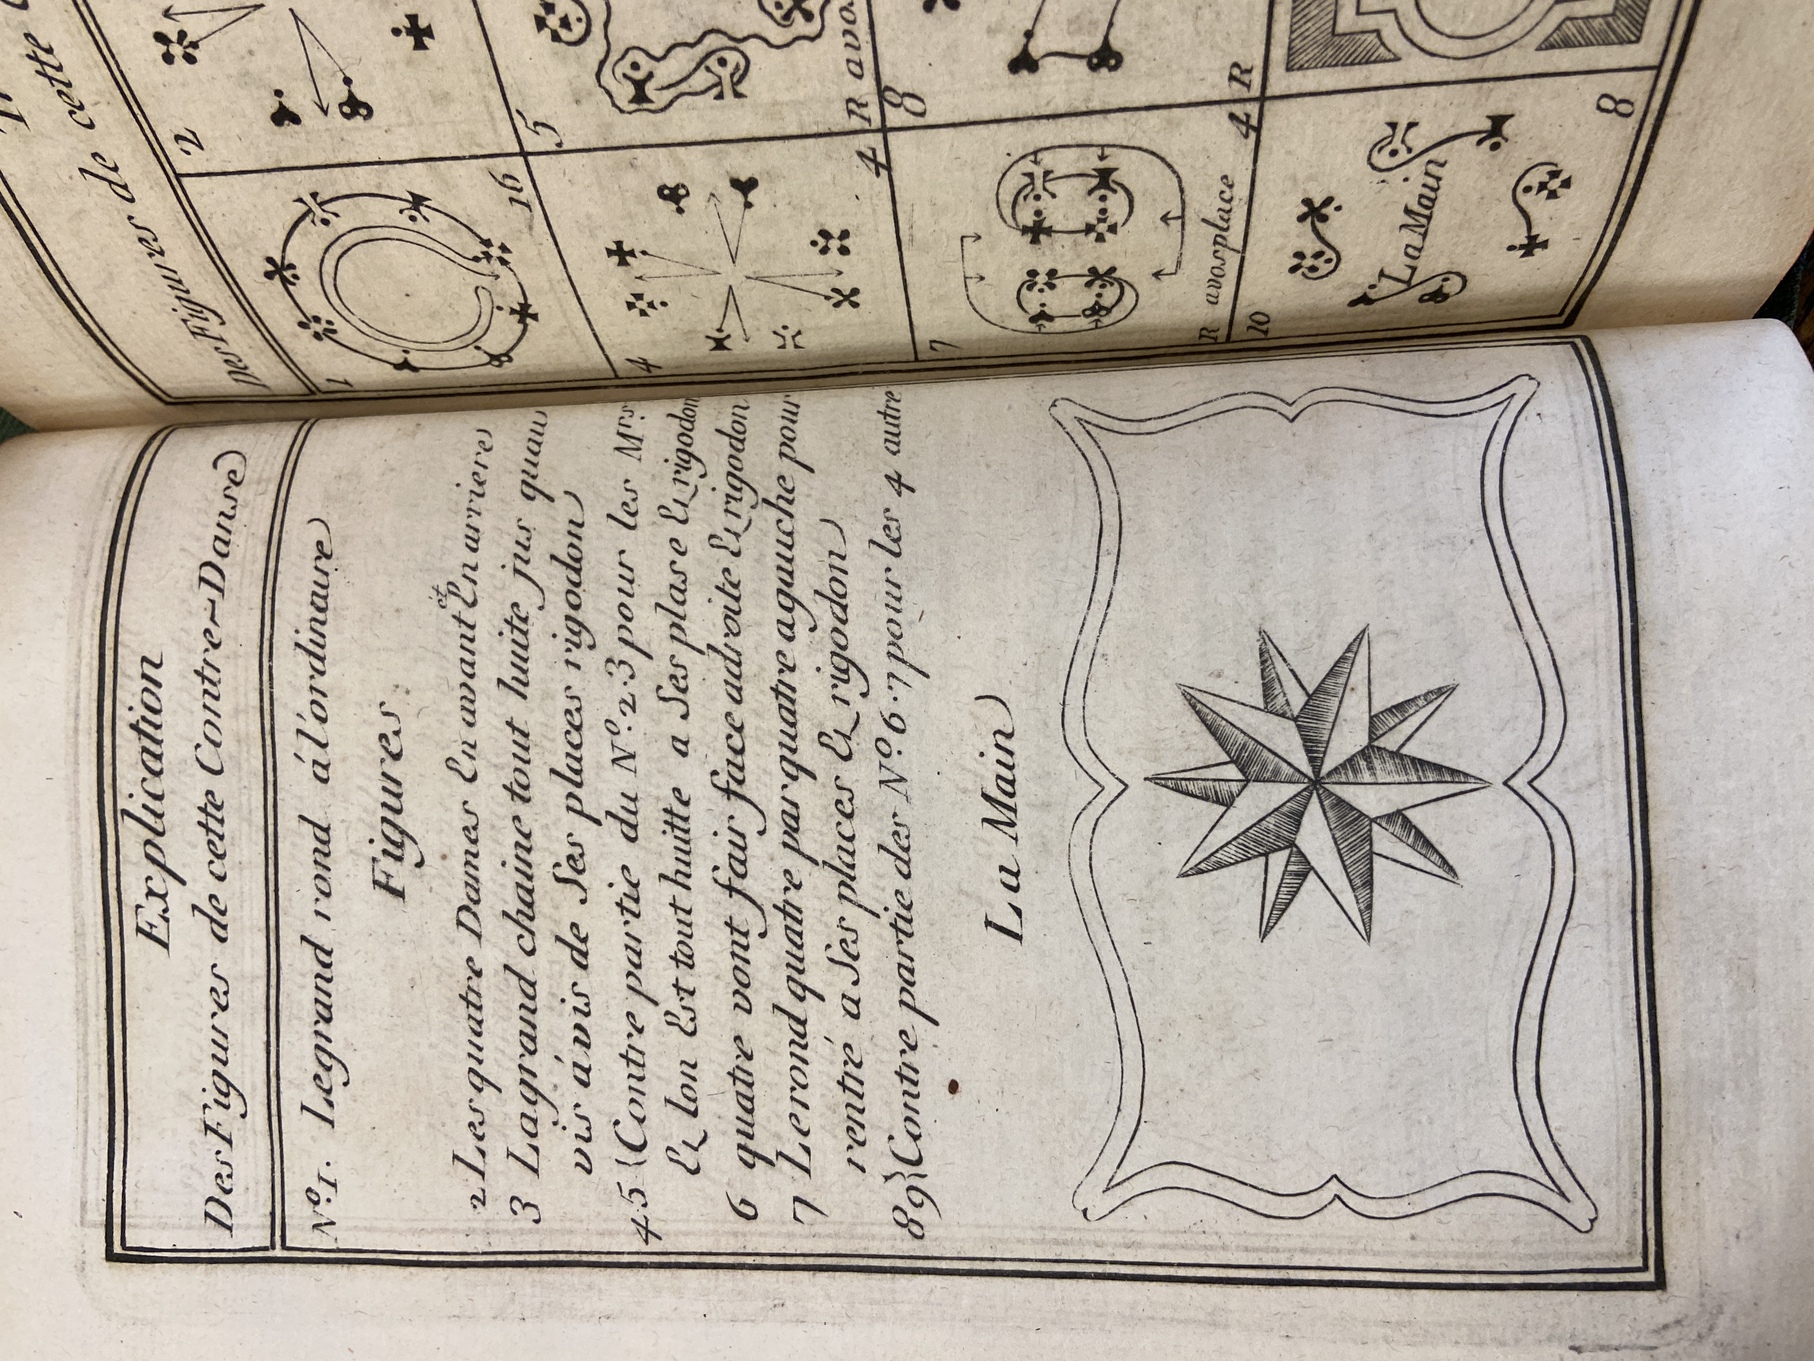 Explication
Des Figures de cette Contre-Danse
N.º 1. Legrand rond á l'ordinaire
Figures
2 Les quatre Dames En avant et En arriere
3 Lagrand chaine tout huite jus quau
vis ávis de Ses places rigodon
4 5 { Contre partie du N.º 2.3 pour les Mrs.
& lon Est tout huitte a Ses plase & rigodon
6 quatre vont fair face adroite & rigodon
7 Lerond quatre par quatre agauche pour
rentré a Ses places & rigodon
8 9 } Contre partie des N.º 6.7 pour les 4 autre
La Main
Des Figures de cette
1
16
2
4
4
5
R avo
7
R avosplace
4
8
R
10
La Main
8